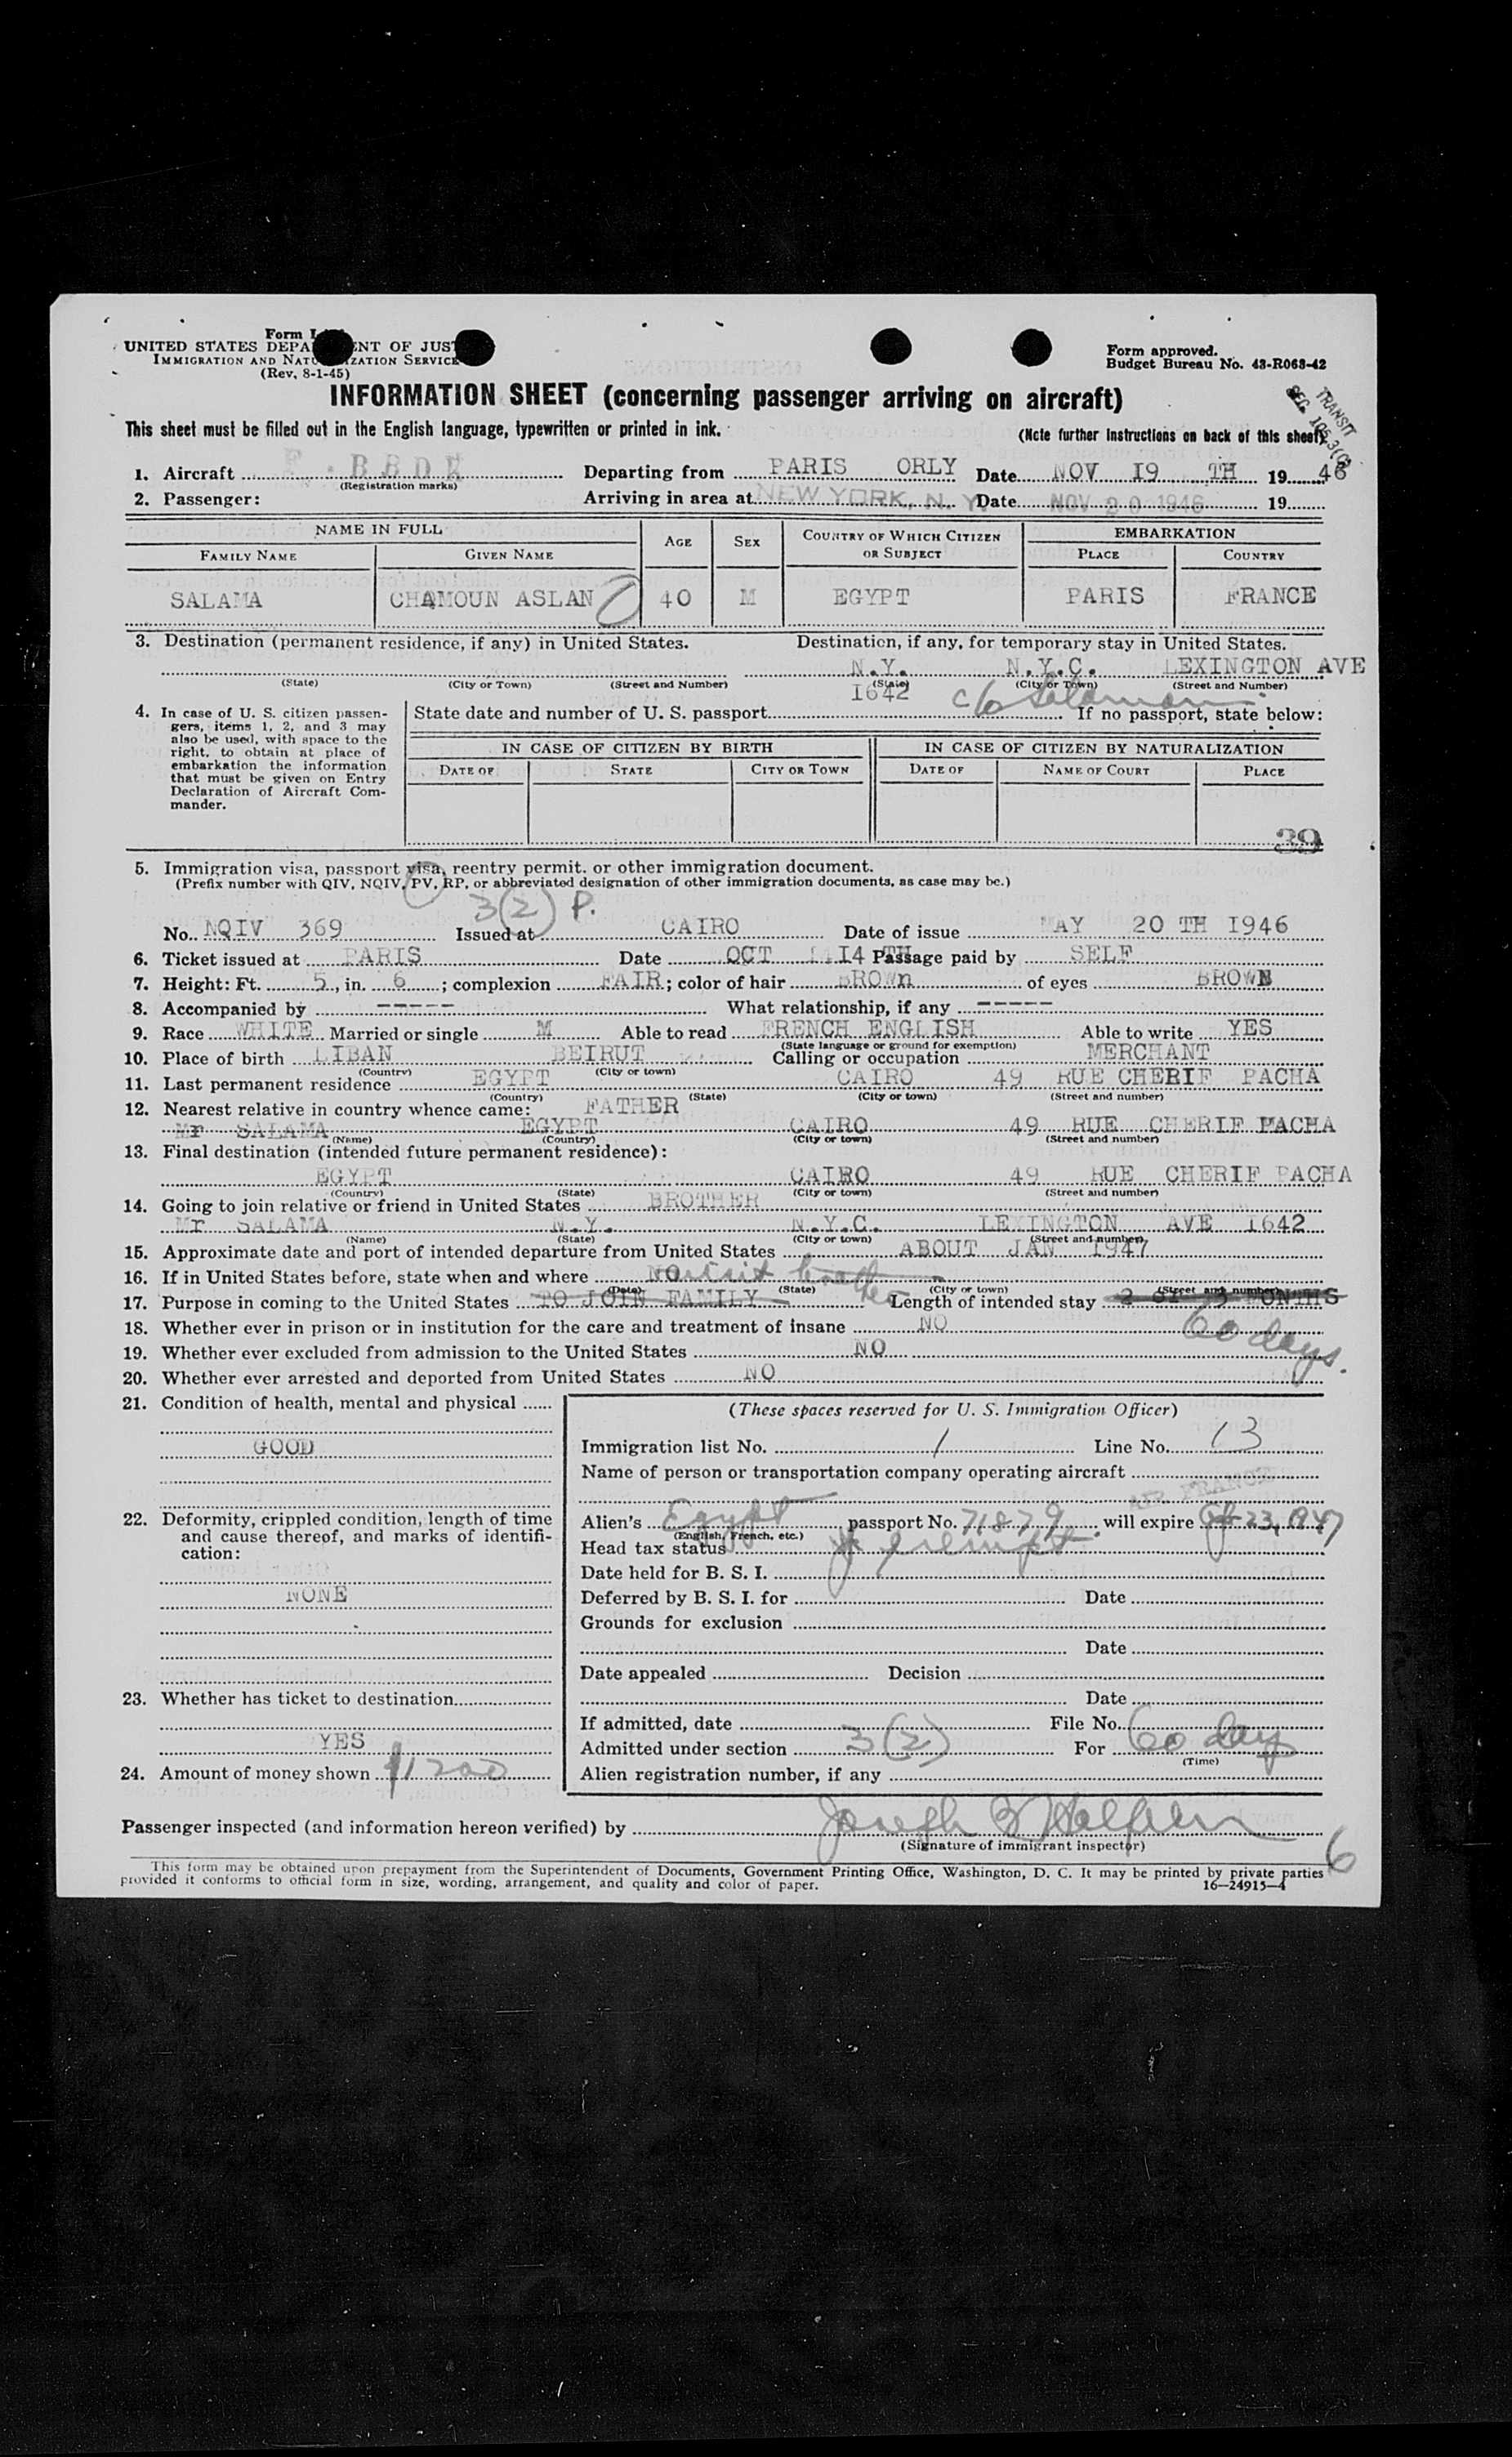 Form I
UNITED STATES DEPA ENT OF JUST
IMMIGRATION AND NATU IZATION SERVICE
(Rev. 8-1-45)
Form approved.
Budget Bureau No. 43-R063-42
INFORMATION SHEET (concerning passenger arriving on aircraft)
TRANSIT
SEC. 105.3(C)
This sheet must be filled out in the English language, typewritten or printed in ink.
(Note further instructions on back of this sheet)
1. Aircraft F. BBDK Departing from PARIS ORLY Date NOV 19 TH 19 46
(Registration marks)
2. Passenger: Arriving in area at NEW YORK, N. Y. Date NOV 20 1946 19
NAME IN FULL AGE SEX COUNTRY OF WHICH CITIZEN OR SUBJECT EMBARKATION
FAMILY NAME GIVEN NAME PLACE COUNTRY
SALAMA CHAMOUN ASLAN 40 M EGYPT PARIS FRANCE
3. Destination (permanent residence, if any) in United States. Destination, if any, for temporary stay in United States.
N.Y. N.Y.C. LEXINGTON AVE
(State) (City or Town) (Street and Number) (State) (City or Town) (Street and Number)
1642 c/o Salomon
4. In case of U. S. citizen passengers, items 1, 2, and 3 may also be used, with space to the right, to obtain at place of embarkation the information that must be given on Entry Declaration of Aircraft Commander.
State date and number of U. S. passport If no passport, state below:
IN CASE OF CITIZEN BY BIRTH IN CASE OF CITIZEN BY NATURALIZATION
DATE OF STATE CITY OR TOWN DATE OF NAME OF COURT PLACE
39
5. Immigration visa, passport visa, reentry permit, or other immigration document.
(Prefix number with QIV, NQIV, PV, RP, or abbreviated designation of other immigration documents, as case may be.)
3(2) P.
No. NQIV 369 Issued at CAIRO Date of issue MAY 20 TH 1946
6. Ticket issued at PARIS Date OCT 14 TH Passage paid by SELF
7. Height: Ft. 5, in. 6; complexion FAIR; color of hair BROWn of eyes BROWN
8. Accompanied by ----- What relationship, if any -----
9. Race WHITE Married or single M Able to read FRENCH ENGLISH Able to write YES
(State language or ground for exemption)
10. Place of birth LIBAN BEIRUT Calling or occupation MERCHANT
(Country) (City or town)
11. Last permanent residence EGYPT CAIRO 49 RUE CHERIF PACHA
(Country) (State) (City or town) (Street and number)
12. Nearest relative in country whence came: FATHER
Mr SALAMA EGYPT CAIRO 49 RUE CHERIF PACHA
(Name) (Country) (City or town) (Street and number)
13. Final destination (intended future permanent residence):
EGYPT CAIRO 49 RUE CHERIF PACHA
(Country) (State) (City or town) (Street and number)
14. Going to join relative or friend in United States BROTHER
Mr SALAMA N.Y. N.Y.C. LEXINGTON AVE 1642
(Name) (State) (City or town) (Street and number)
15. Approximate date and port of intended departure from United States ABOUT JAN 1947
16. If in United States before, state when and where NO visit brother
(Date) (State) (City or town) (Street and number)
17. Purpose in coming to the United States TO JOIN FAMILY Length of intended stay 2 or 3 MONTHS
18. Whether ever in prison or in institution for the care and treatment of insane NO 60 days.
19. Whether ever excluded from admission to the United States NO
20. Whether ever arrested and deported from United States NO
21. Condition of health, mental and physical
GOOD
22. Deformity, crippled condition, length of time and cause thereof, and marks of identification:
NONE
23. Whether has ticket to destination
YES
24. Amount of money shown $1200
(These spaces reserved for U. S. Immigration Officer)
Immigration list No. 1 Line No. 13
Name of person or transportation company operating aircraft
AIR FRANCE
Alien's Egypt passport No. 71879 will expire 23, 1947
(English, French, etc.)
Head tax status exempt
Date held for B. S. I.
Deferred by B. S. I. for Date
Grounds for exclusion
Date
Date appealed Decision
Date
If admitted, date File No.
Admitted under section 3(2) For 60 day
(Time)
Alien registration number, if any
Passenger inspected (and information hereon verified) by Joseph Halpern
(Signature of immigrant inspector)
6
This form may be obtained upon prepayment from the Superintendent of Documents, Government Printing Office, Washington, D. C. It may be printed by private parties
provided it conforms to official form in size, wording, arrangement, and quality and color of paper. 16—24915-4